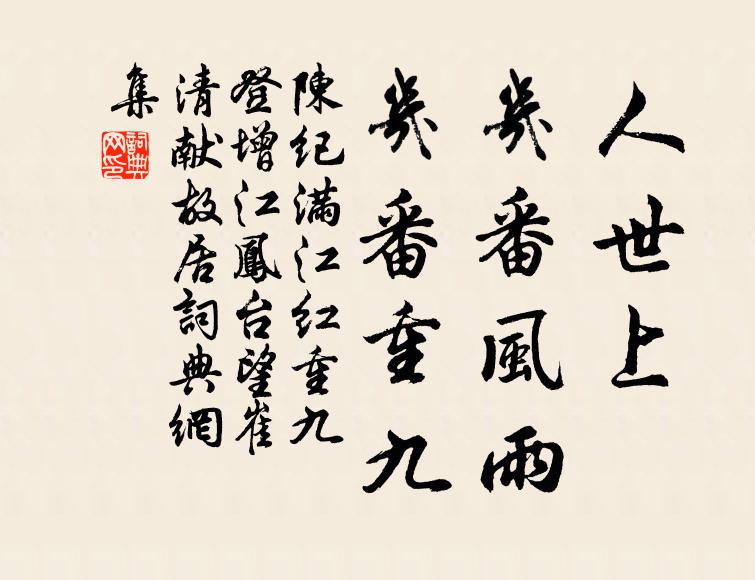 人世上
幾番風雨
幾番重九
陳紀滿江红重九
登增江鳳台望崔
清献故居詞典網
集
詞典
网印